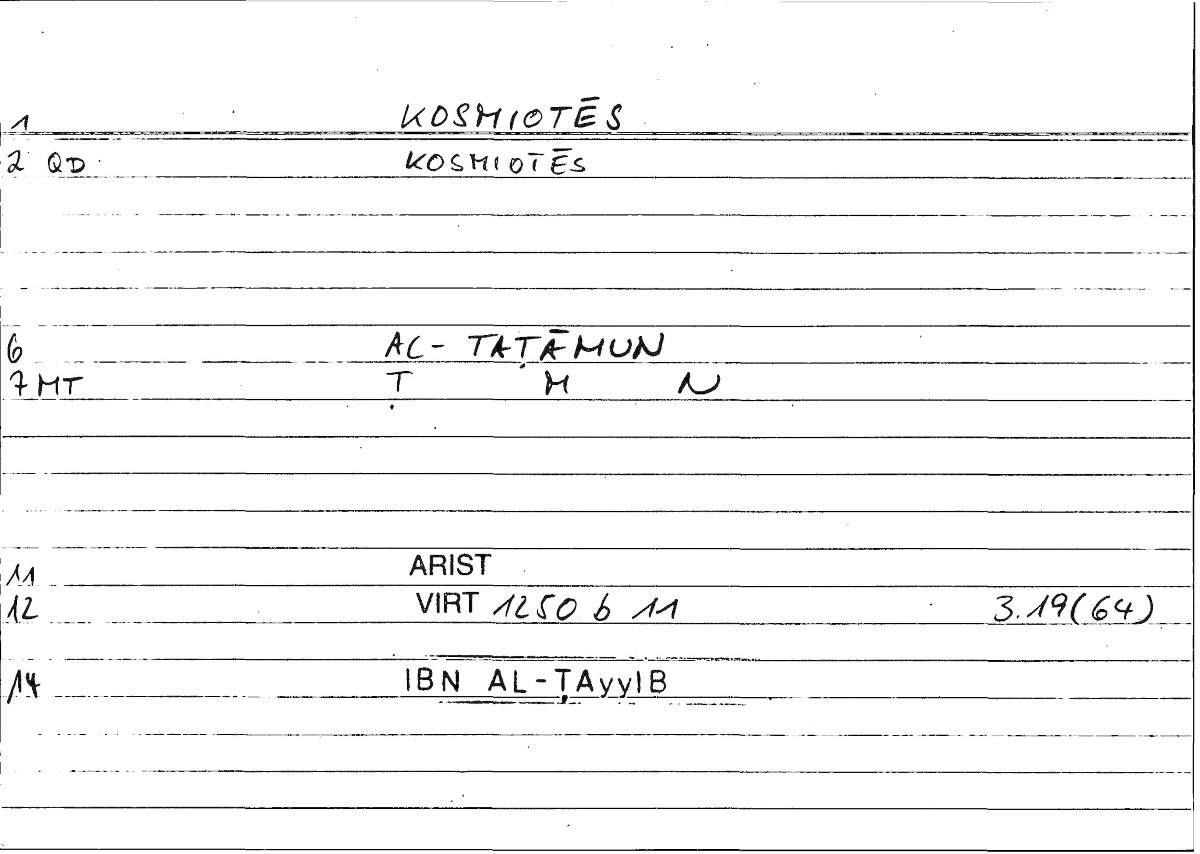 1 KOSMIOTĒS
2 QD KOSMIOTĒS
6 AL- TAṬĀMUN
7 MT Ṭ M N
11 ARIST
12 VIRT 1250 b 11 3.19(64)
14 IBN AL-ṬAyyIB